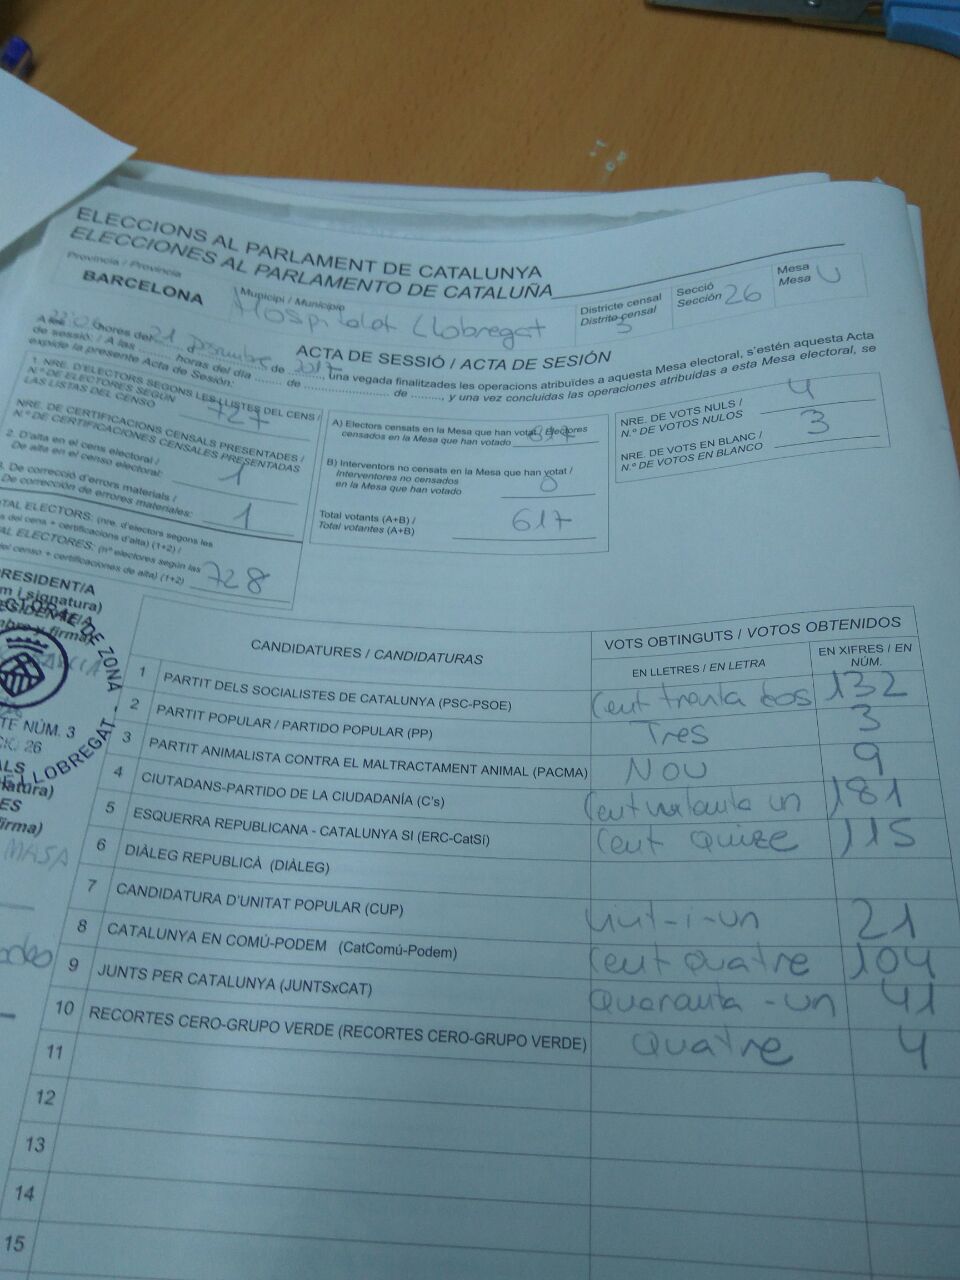 ELECCIONS AL PARLAMENT DE CATALUNYA
ELECCIONES AL PARLAMENTO DE CATALUÑA
Província / Provincia
BARCELONA
Municipi / Municipio
Hospitalet Llobregat
Districte censal
Distrito censal
3
Secció
Sección
26
Mesa
Mesa
U
ACTA DE SESSIÓ / ACTA DE SESIÓN
hores del 21 d de 2017, una vegada finalitzades les operacions atribuïdes a aquesta Mesa electoral, s'estén aquesta Acta
de sessió: / A las ........ horas del día ........ de ........ de ........, y una vez concluidas las operaciones atribuidas a esta Mesa electoral, se
expide la presente Acta de Sesión:
1. NRE. D'ELECTORS SEGONS LES LLISTES DEL CENS /
N.º DE ELECTORES SEGÚN
LAS LISTAS DEL CENSO
727
NRE. DE CERTIFICACIONS CENSALS PRESENTADES /
N.º DE CERTIFICACIONES CENSALES PRESENTADAS
2. D'alta en el cens electoral /
De alta en el censo electoral:
1
De correcció d'errors materials /
De corrección de errores materiales:
1
TAL ELECTORS: (nre. d'electors segons les
del cens + certificacions d'alta) (1+2) /
AL ELECTORES: (nº electores según las
del censo + certificaciones de alta) (1+2)
728
A) Electors censats en la Mesa que han votat / Electores
censados en la Mesa que han votado
B) Interventors no censats en la Mesa que han votat /
Interventores no censados
en la Mesa que han votado
0
Total votants (A+B) /
Total votantes (A+B)
617
NRE. DE VOTS NULS /
N.º DE VOTOS NULOS
4
NRE. DE VOTS EN BLANC /
N.º DE VOTOS EN BLANCO
3
PRESIDENT/A
m i signatura)
firma
DE ZONA
TE NÚM. 3
26
LLOBREGAT
ALS
natura)
ES
firma)
MASA
CANDIDATURES / CANDIDATURAS
VOTS OBTINGUTS / VOTOS OBTENIDOS
EN LLETRES / EN LETRA
EN XIFRES / EN
NÚM.
1 PARTIT DELS SOCIALISTES DE CATALUNYA (PSC-PSOE) Cent trenta dos 132
2 PARTIT POPULAR / PARTIDO POPULAR (PP) Tres 3
3 PARTIT ANIMALISTA CONTRA EL MALTRACTAMENT ANIMAL (PACMA) NOU 9
4 CIUTADANS-PARTIDO DE LA CIUDADANÍA (C's) Cent vuitanta un 181
5 ESQUERRA REPUBLICANA - CATALUNYA SI (ERC-CatSí) Cent quize 115
6 DIÀLEG REPUBLICÀ (DIÀLEG)
7 CANDIDATURA D'UNITAT POPULAR (CUP) Vint-i-un 21
8 CATALUNYA EN COMÚ-PODEM (CatComú-Podem) Cent quatre 104
9 JUNTS PER CATALUNYA (JUNTSxCAT) Quaranta-un 41
10 RECORTES CERO-GRUPO VERDE (RECORTES CERO-GRUPO VERDE) Quatre 4
11
12
13
14
15